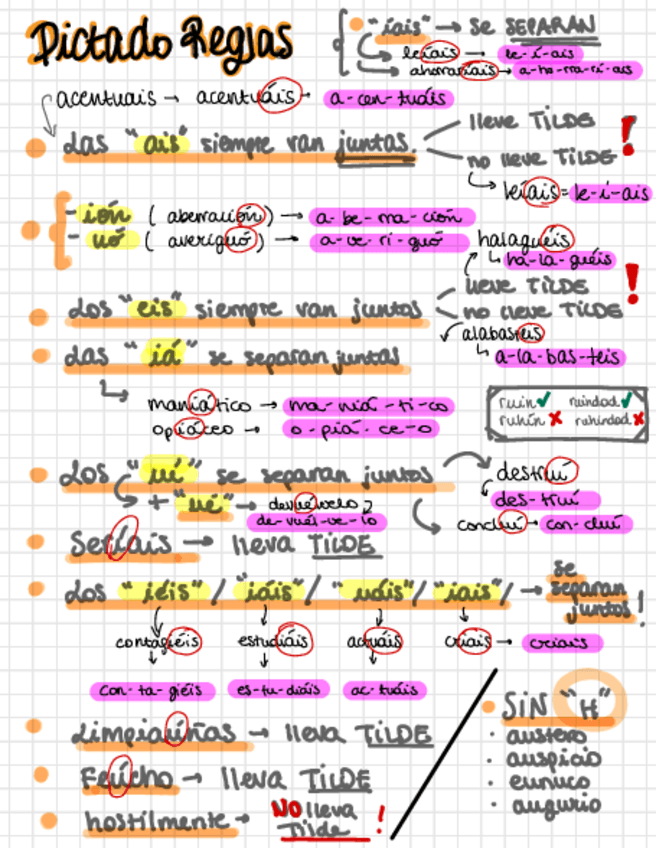 Dictado Reglas
"íais" → se SEPARAN
leíais → le-í-ais
ahorraríais → a-ho-rra-rí-ais
acentuais → acentuáis → a-cen-tuáis
Las "ais" siempre van juntas.
lleve TILDE
no lleve TILDE !
leíais = le-í-ais
- ión ( aberración) → a-be-rra-ción
- uó ( averiguó) → a-ve-ri-guó
halaguéis
ha-la-guéis
Los "eis" siempre van juntos
lleve TILDE
no lleve TILDE !
alabasteis
a-la-bas-teis
Las "iá" se separan juntas
maniático → ma-niá-ti-co
opiáceo → o-piá-ce-o
ruin ✓ ruindad ✓
ruhín ✗ ruhindad ✗
Los "uí" se separan juntos
destruí
des-truí
+ "ué" → devuévelo
de-vuél-ve-lo
concluí → con-cluí
Seríais → lleva TILDE
Los "iéis" / "iáis" / "uáis" / "iais" / → se separan juntos !
contagiéis estudiáis actuáis criais → criais
con-ta-giéis es-tu-diáis ac-tuáis
Limpiaúñas → lleva TILDE
Feúcho → lleva TILDE
hostilmente → NO lleva Tilde !
SIN "H"
· austero
· auspicio
· eunuco
· augurio